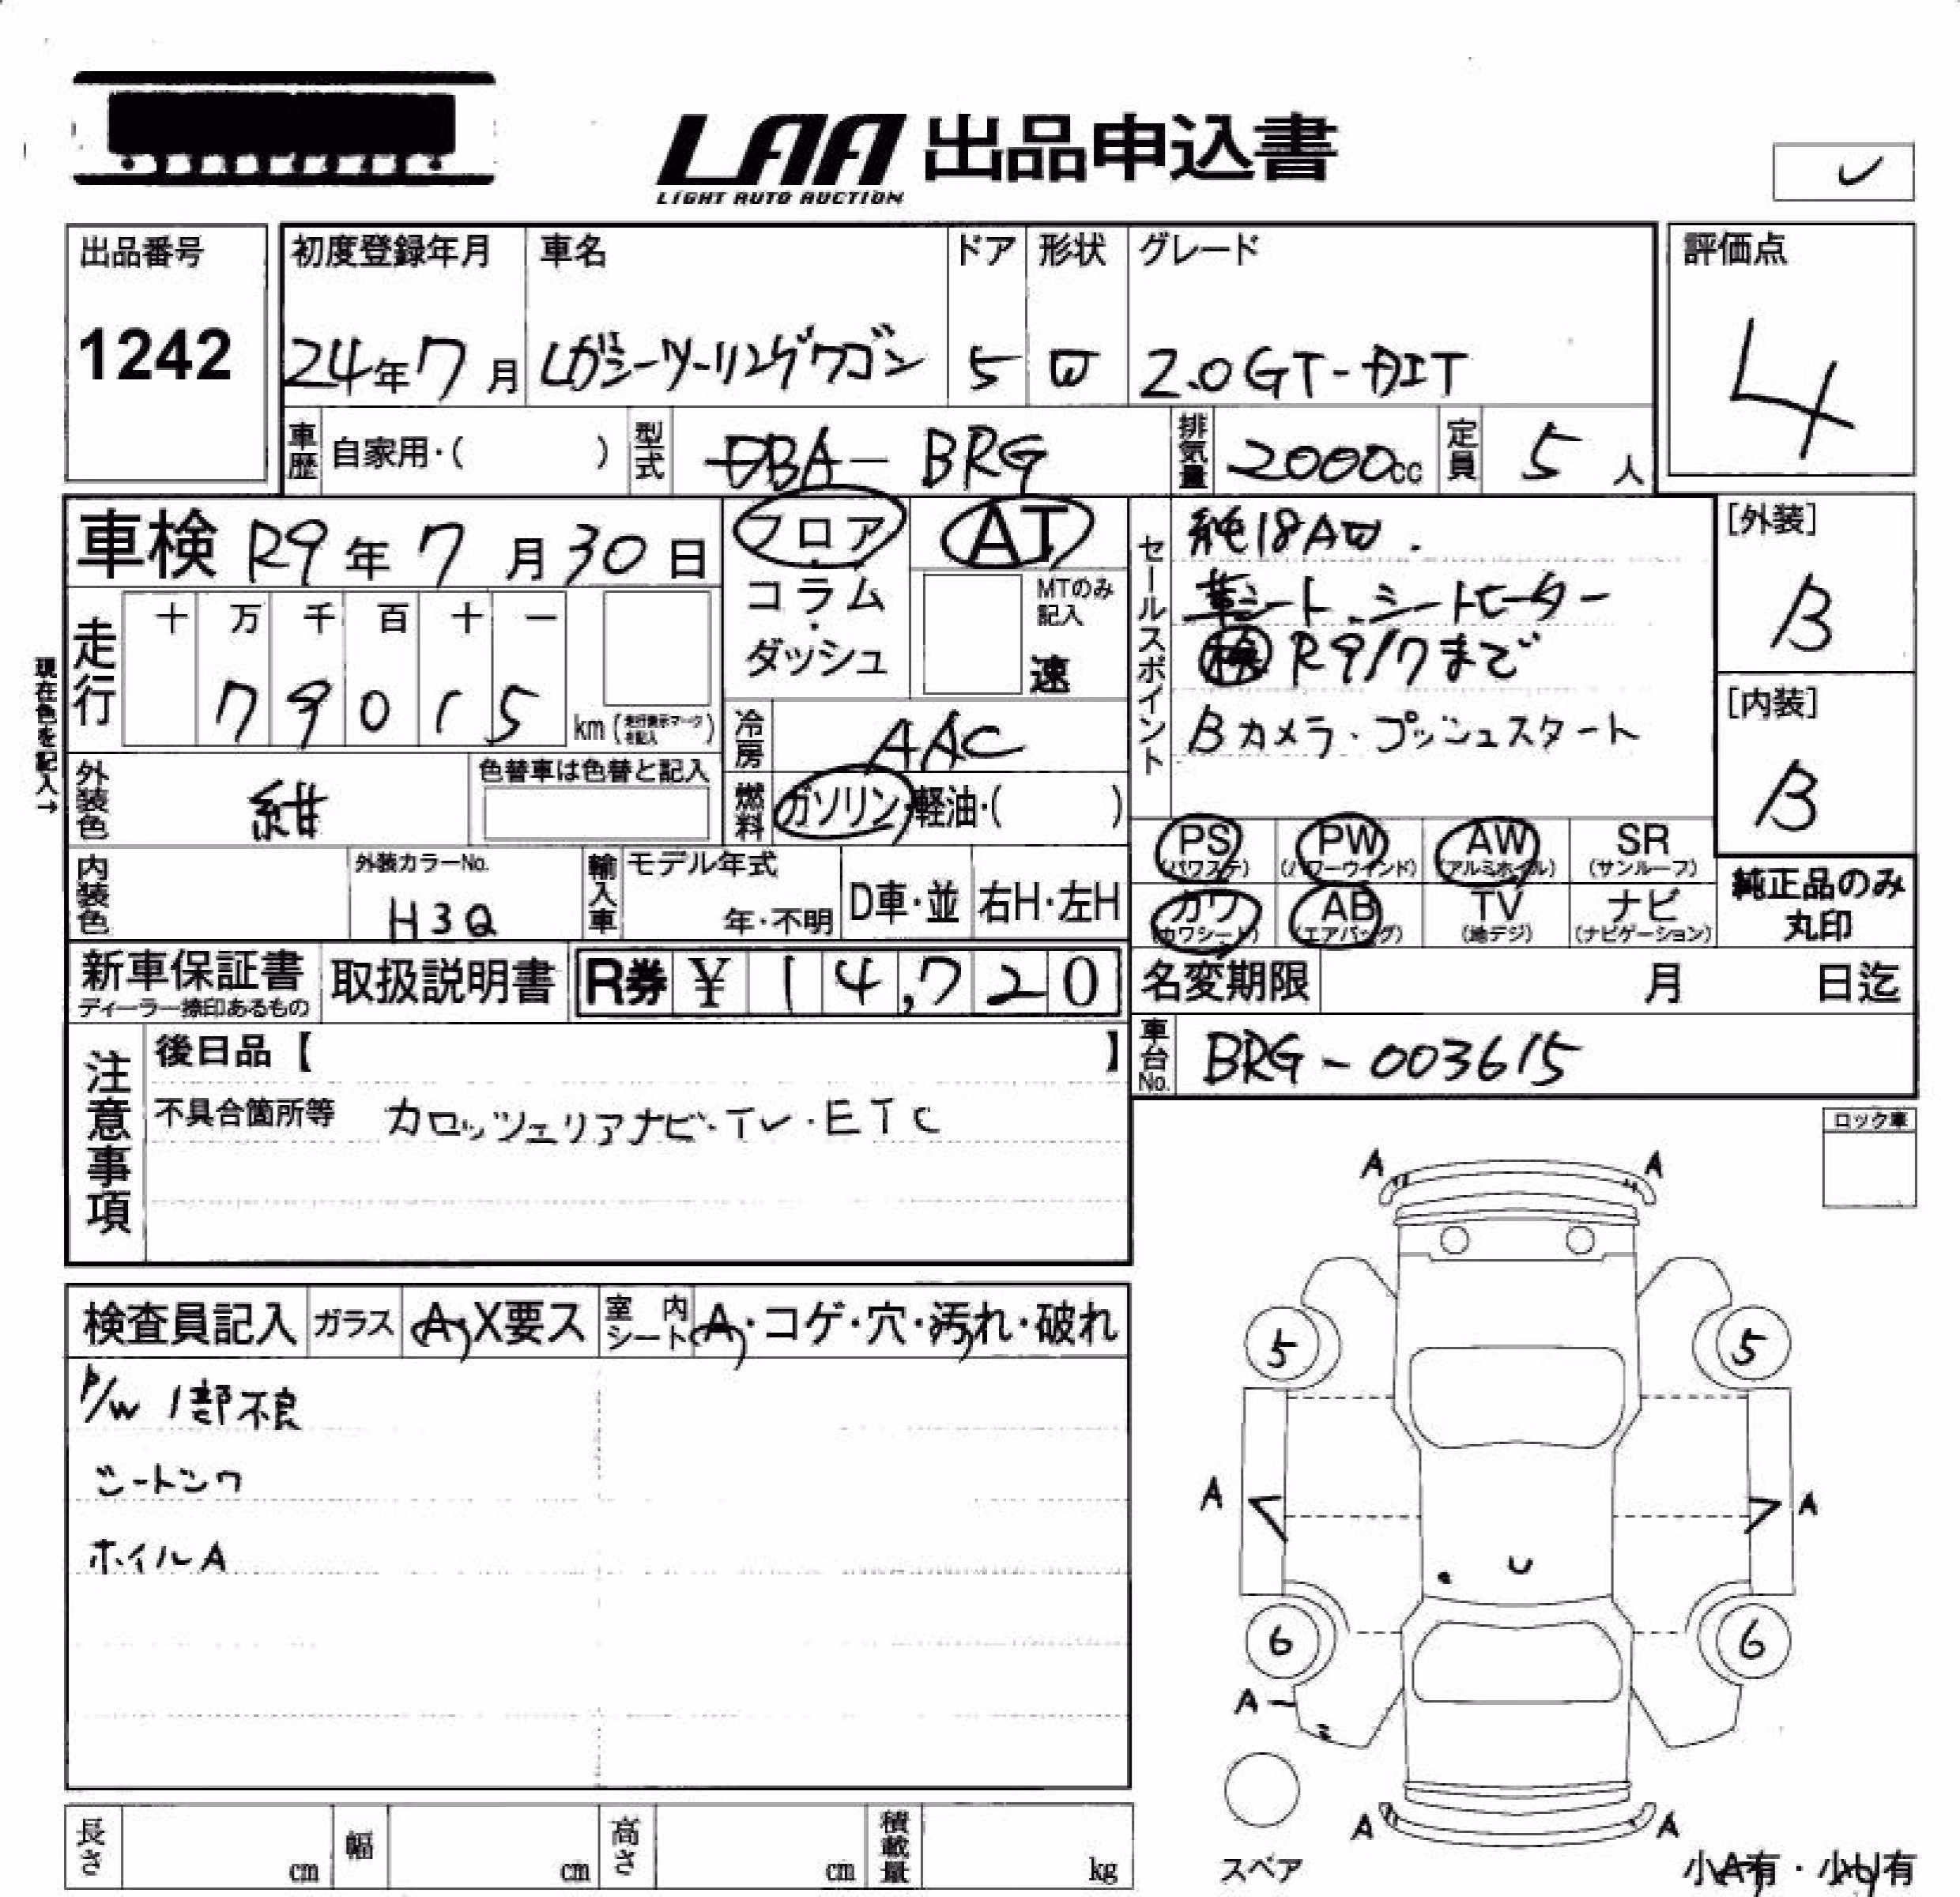 LAA 出品申込書
LIGHT AUTO AUCTION
出品番号
1242
初度登録年月
24年7月
車名
レガシーツーリングワゴン
ドア
5
形状
W
グレード
2.0GT-DIT
評価点
4
車歴 自家用・( )
型式 DBA- BRG
排気量 2000cc
定員 5人
車検 R9年7月30日
フロア・コラム・ダッシュ
AT
MTのみ記入
速
走行 十 万 千 百 十 一
79015
km (走行表示マークを記入)
現在色を記入→
冷房 AAC
燃料 ガソリン・軽油・( )
セールスポイント
純18AW.
革シート.シートヒーター
検 R9/7まで
Bカメラ・プッシュスタート
[外装]
B
[内装]
B
外装色 紺
色替車は色替と記入
内装色
外装カラーNo.
H3Q
輸入車
モデル年式
年・不明
D車・並
右H・左H
PS (パワステ)
PW (パワーウインド)
AW (アルミホイル)
SR (サンルーフ)
カワ (カワシート)
AB (エアバッグ)
TV (地デジ)
ナビ (ナビゲーション)
純正品のみ丸印
新車保証書
ディーラー捺印あるもの
取扱説明書
R券 ¥ 14,720
名変期限 月 日迄
車台No. BRG-003615
注意事項
後日品【 】
不具合箇所等 カロッツェリアナビ・TV・ETC
ロック車
検査員記入
ガラス A・X要ス
室内シート A・コゲ・穴・汚れ・破れ
P/W 1部不良
シートシワ
ホイルA
A A
5 5
A A
U
6 6
A
A A
スペア
小A有・小U有
長さ cm
幅 cm
高さ cm
積載量 kg